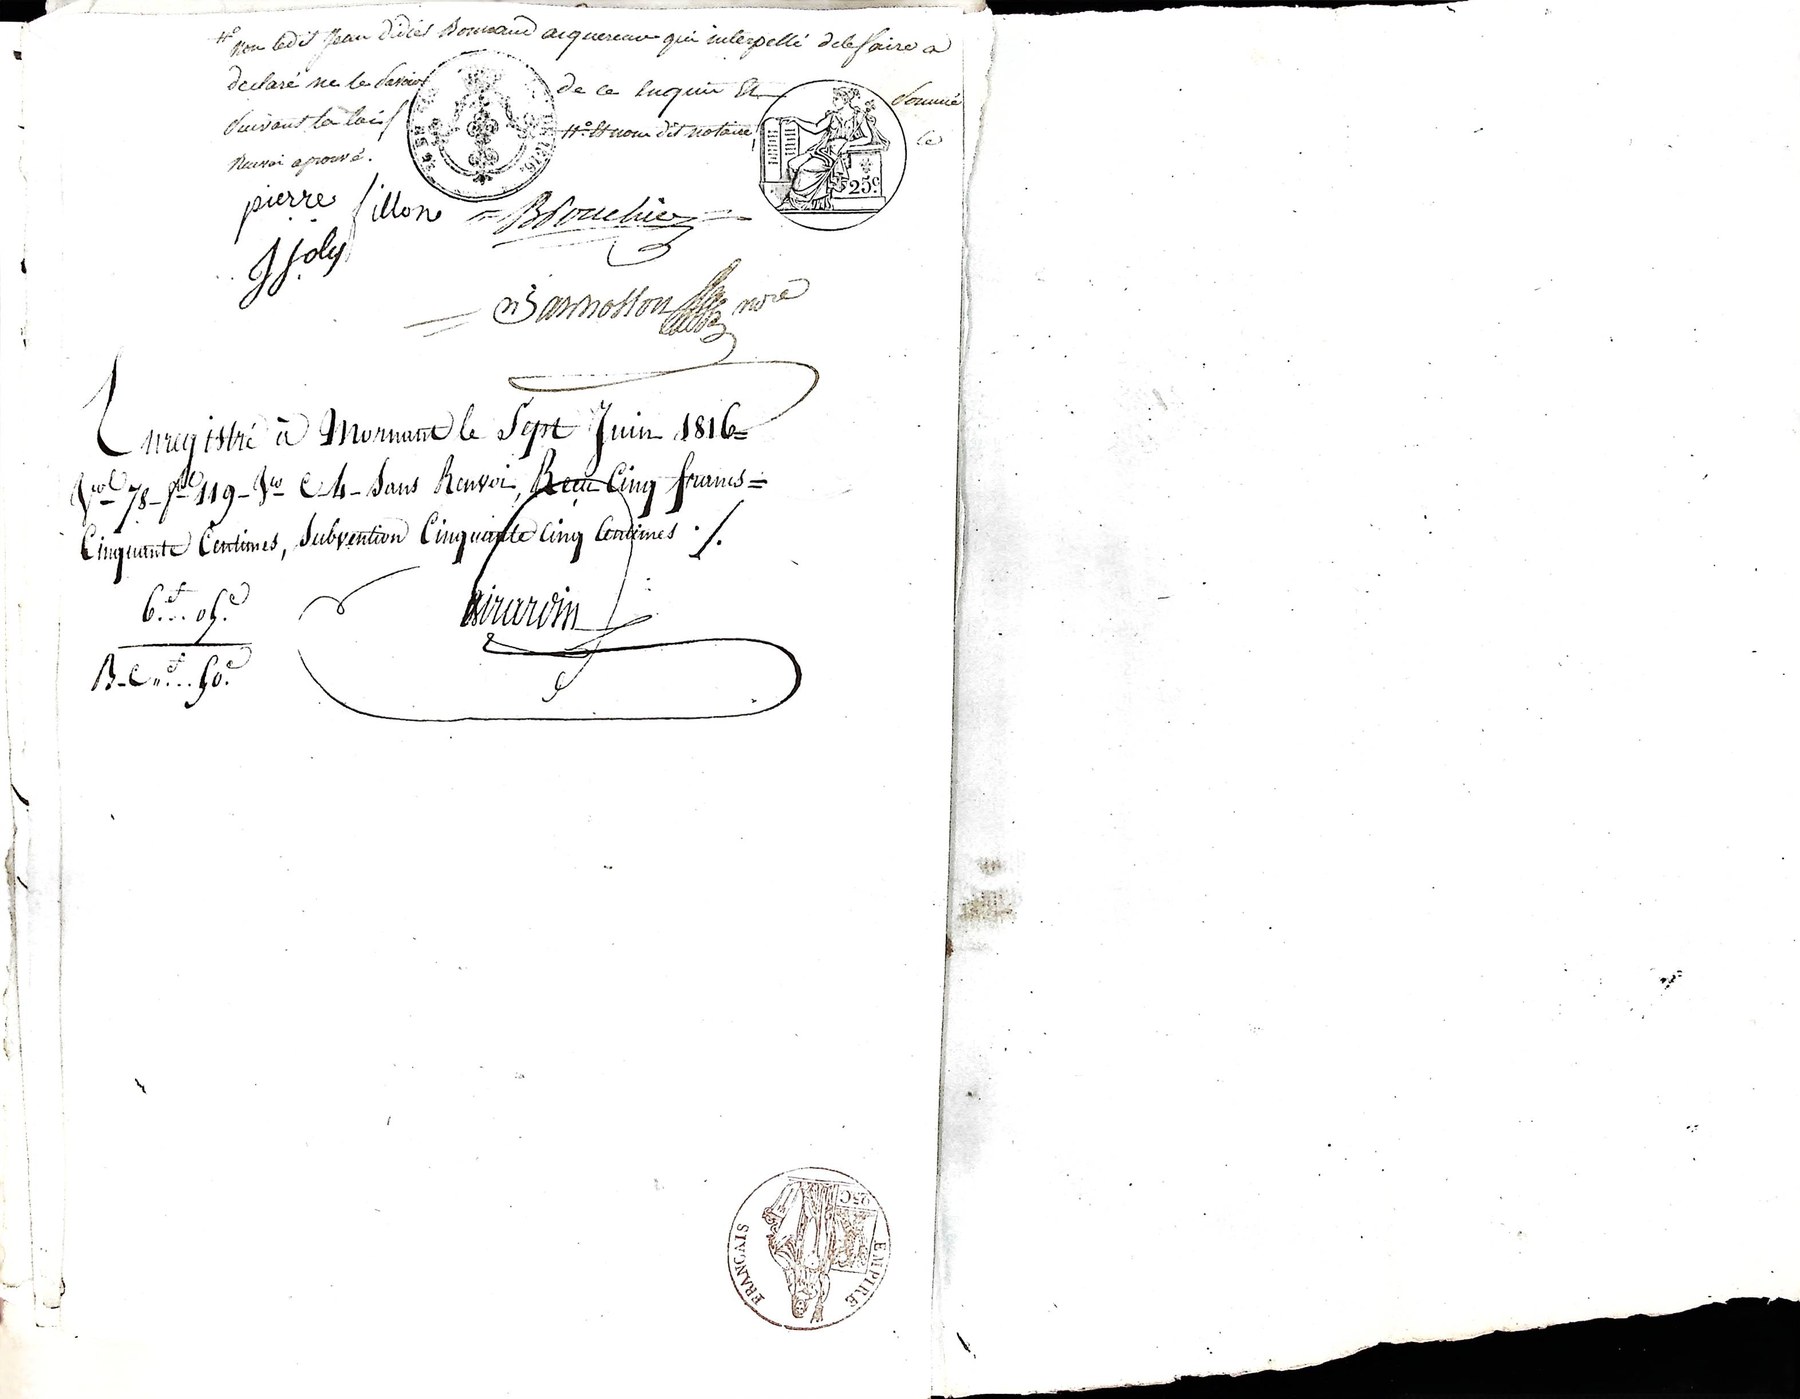 Non ledit Jean didier Bonnand acquereur qui interpellé de le faire a
declaré ne le savoir de ce enquis Et sommé
suivant la loi Et nous dit notaire, le
Renvoi aprouvé.
25c.
pierre fillon
J Joly
nre
Enregistré à Mornant le Sept Juin 1816
vol 78 fol 119 vo C 4 Sans Renvoi, Reçu Cinq francs
Cinquante Centimes, Subvention Cinquante Cinq Centimes ./.
6f... 05c
Girardin
B-C "f... 50c
EMPIRE FRANCAIS
25C